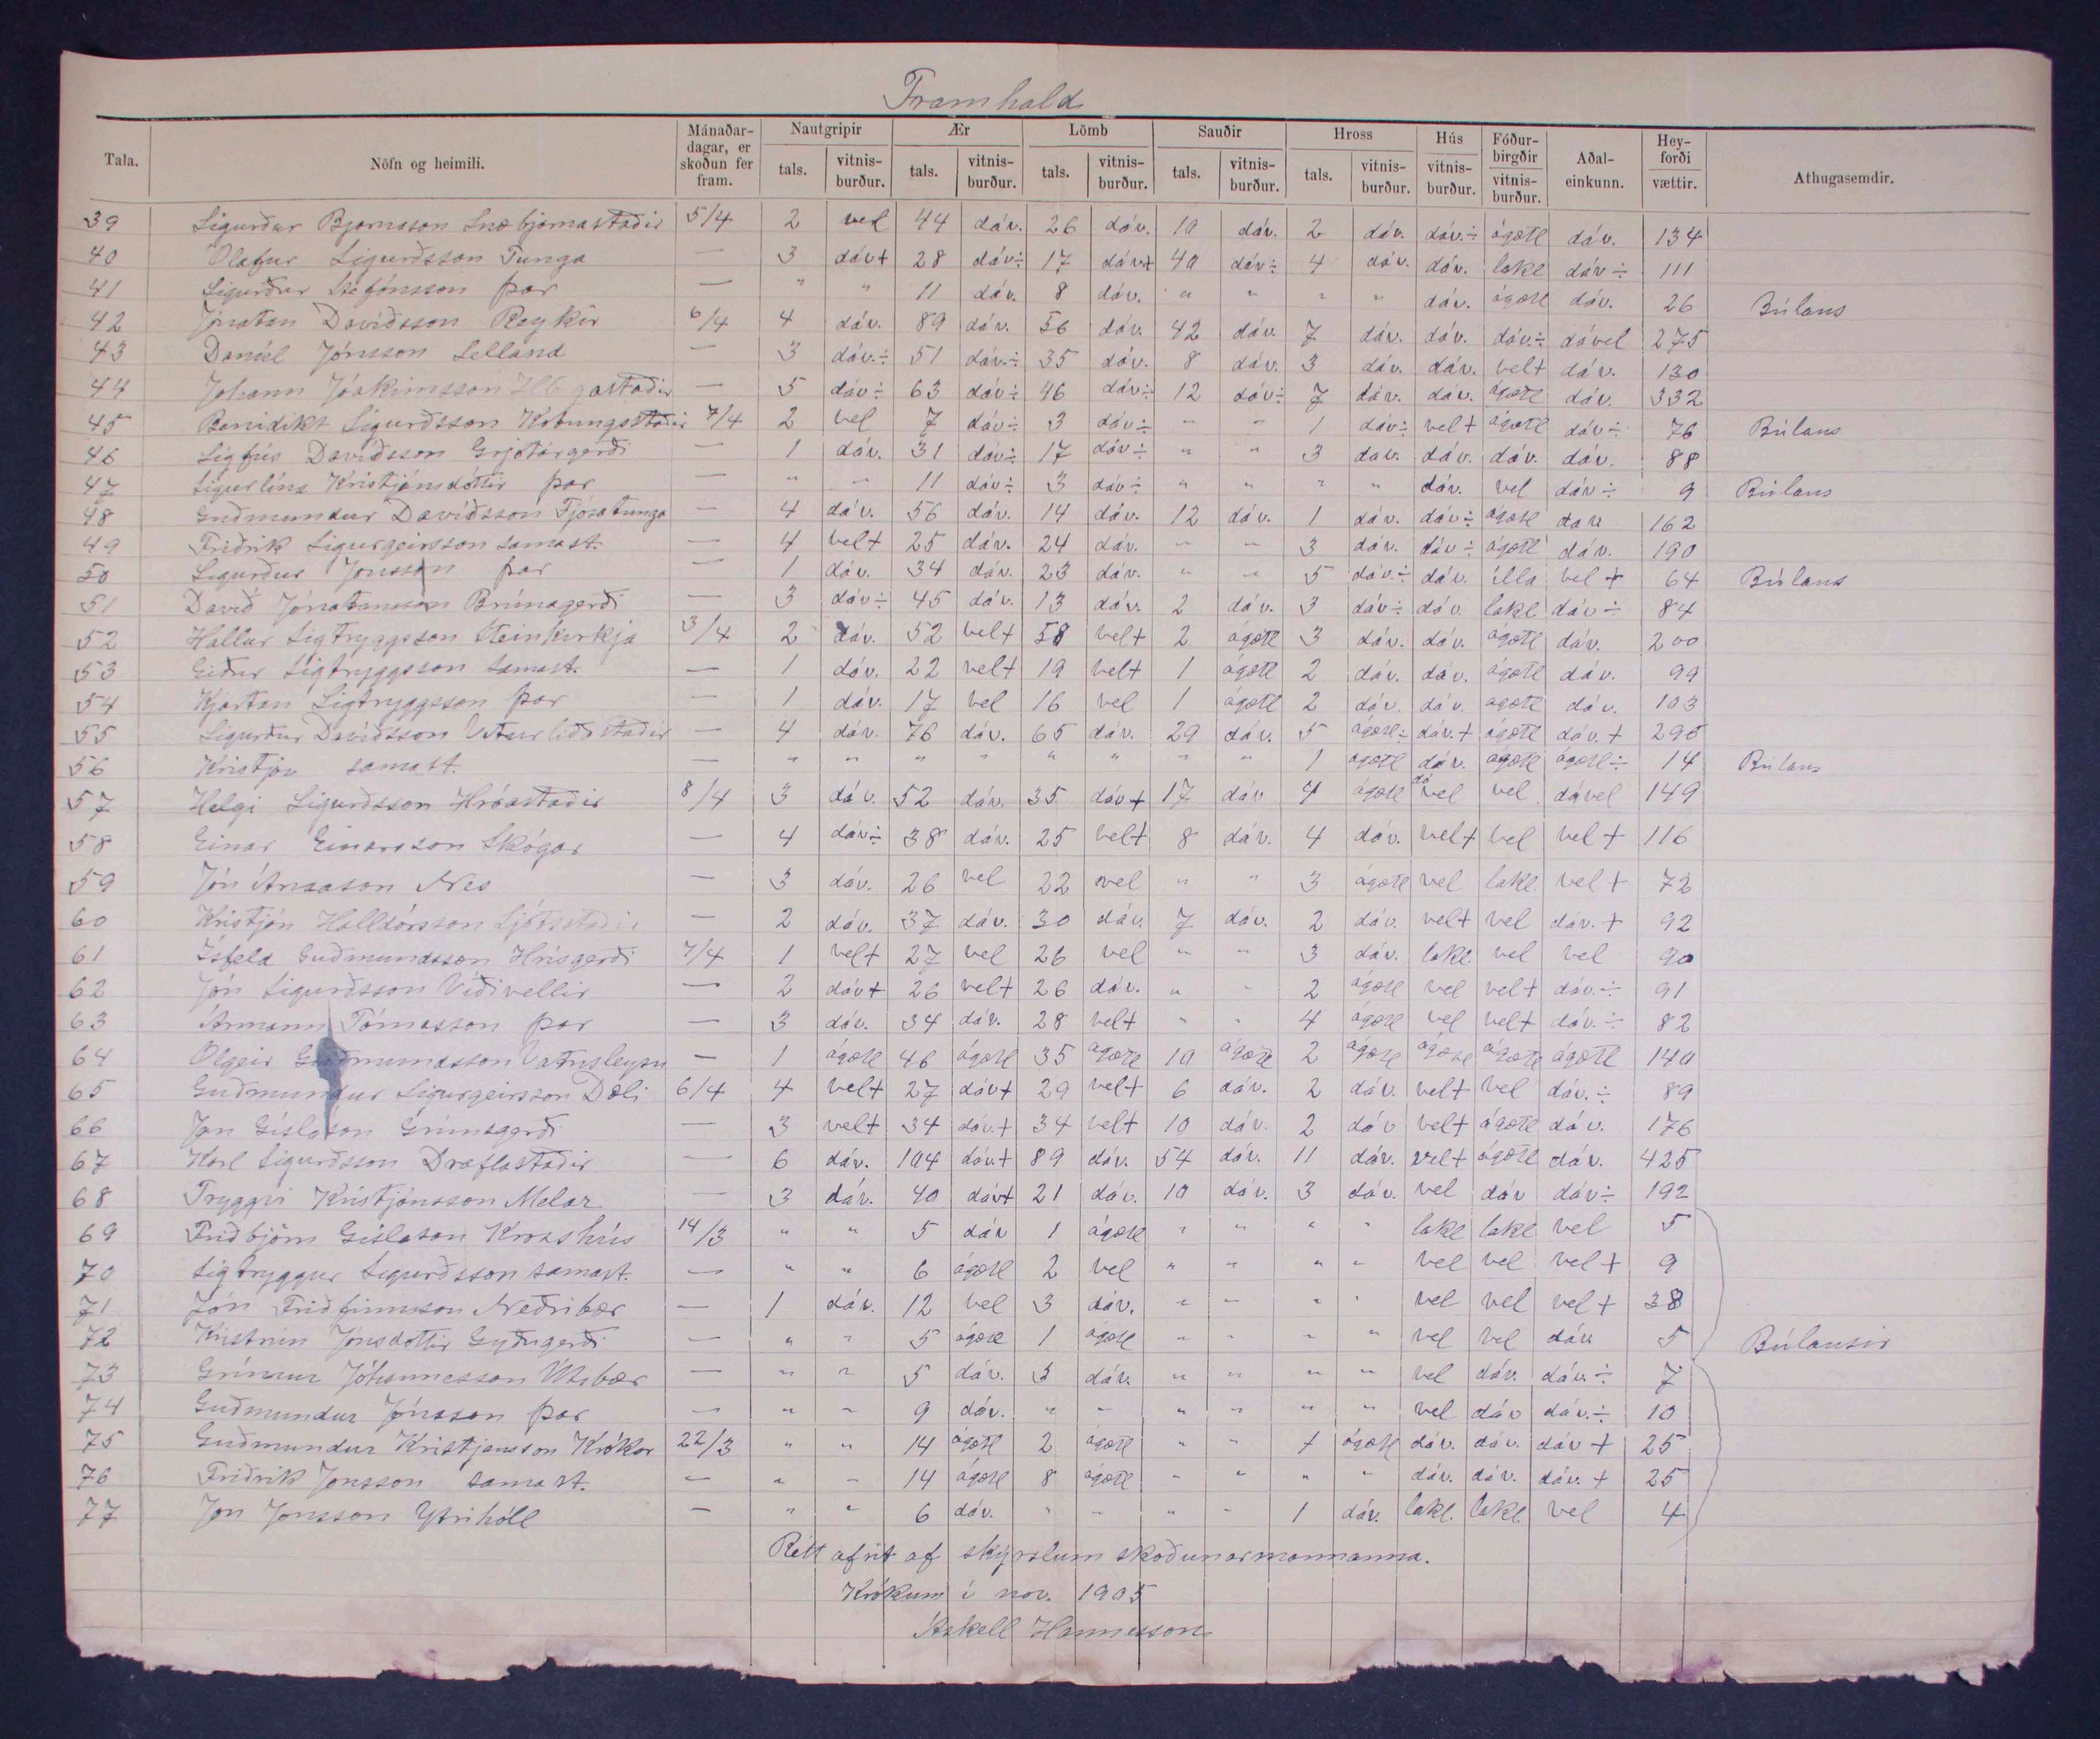 Framhald
Tala. Nöfn og heimili. Mánaðardagar, er skoðun fer fram. Nautgripir tals. vitnisburður. Ær tals. vitnisburður. Lömb tals. vitnisburður. Sauðir tals. vitnisburður. Hross tals. vitnisburður. Hús vitnisburður. Fóðurbirgðir vitnisburður. Aðaleinkunn. Heyforði vættir. Athugasemdir.
39 Sigurður Bjarnason Snæbjarnastaðir 5/4 2 vel 44 dáv. 26 dáv. 10 dáv. 2 dáv. dáv.÷ ágætl dáv. 134
40 Ólafur Sigurðsson Tunga — 3 dáv+ 28 dáv÷ 17 dáv+ 40 dáv÷ 4 dáv. dáv. lakl dáv÷ 111
41 Sigurður Stefánsson þar — " " 11 dáv. 8 dáv. " " " " dáv. ágætl dáv. 26 Búlaus
42 Jónatan Davíðsson Reykir 6/4 4 dáv. 89 dáv. 56 dáv. 42 dáv. 7 dáv. dáv. dáv.÷ dável 275
43 Daníel Jónsson Selland — 3 dáv.÷ 51 dáv.÷ 35 dáv. 8 dáv. 3 dáv. dáv. vel+ dáv. 130
44 Jóhann Jóakimsson Illugastaðir — 5 dáv÷ 63 dáv÷ 46 dáv÷ 12 dáv÷ 7 dáv. dáv. ágætl dáv. 332
45 Benidikt Sigurðsson Kotungsstaðir 7/4 2 vel 7 dáv÷ 3 dáv÷ " " 1 dáv÷ vel+ ágætl dáv÷ 76 Búlaus
46 Sigfús Davíðsson Grjótárgerði — 1 dáv. 31 dáv÷ 17 dáv÷ " " 3 dáv. dáv. dáv. dáv. 88
47 Sigurlína Kristjánsdóttir þar — " " 11 dáv÷ 3 dáv÷ " " " " dáv. vel dáv÷ 9 Búlaus
48 Guðmundur Davíðsson Fjósatunga — 4 dáv. 56 dáv. 14 dáv. 12 dáv. 1 dáv. dáv÷ ágætl dáv 162
49 Friðrik Sigurgeirsson samast. — 4 vel+ 25 dáv. 24 dáv. " " 3 dáv. dáv÷ ágætl dáv. 190
50 Sigurður Jónsson þar — 1 dáv. 34 dáv. 23 dáv. " " 5 dáv.÷ dáv. illa vel+ 64 Búlaus
51 Davíð Jónatansson Brúnagerði — 3 dáv÷ 45 dáv. 13 dáv. 2 dáv. 3 dáv÷ dáv lakl dáv÷ 84
52 Hallur Sigtryggsson Steinkirkja 3/4 2 dáv. 52 vel+ 58 vel+ 2 ágætl 3 dáv. dáv. ágætl dáv. 200
53 Eiður Sigtryggsson samast. — 1 dáv. 22 vel+ 19 vel+ 1 ágætl 2 dáv. dáv. ágætl dáv. 99
54 Kjartan Sigtryggsson þar — 1 dáv. 17 vel 16 vel 1 ágætl 2 dáv. dáv. ágætl dáv. 103
55 Sigurður Davíðsson Veturliðastaðir — 4 dáv. 76 dáv. 65 dáv. 29 dáv. 5 ágætl÷ dáv.+ ágætl dáv.+ 295
56 Kristján samast. — " " " " " " " " 1 ágætl dáv. ágætl ágætl÷ 14 Búlaus
57 Helgi Sigurðsson Hróastaðir 8/4 3 dáv. 52 dáv. 35 dáv+ 17 dáv 4 ágætl dável vel dável 149
58 Einar Einarsson Skógar — 4 dáv÷ 38 dáv. 25 vel+ 8 dáv. 4 dáv. vel+ vel vel+ 116
59 Jón Ánason Nes — 3 dáv. 26 vel 22 vel " " 3 ágætl vel lakl vel+ 72
60 Kristján Halldórsson Ljótsstaðir — 2 dáv. 37 dáv. 30 dáv. 7 dáv. 2 dáv. vel+ vel dáv.+ 92
61 Ísfeld Guðmundsson Hrísgerði 7/4 1 vel+ 27 vel 26 vel " " 3 dáv. lakl vel vel 90
62 Jón Sigurðsson Víðivellir — 2 dáv+ 26 vel+ 26 dáv. " " 2 ágætl vel vel+ dáv.÷ 91
63 Ármann Tómasson þar — 3 dáv. 34 dáv. 28 vel+ " " 4 ágætl vel vel+ dáv.÷ 82
64 Olgeir Guðmundsson Vatnsleysu — 1 ágætl 46 ágætl 35 ágætl 10 ágætl 2 ágætl ágætl ágætl ágætl 140
65 Guðmundur Sigurgeirsson Dæli 6/4 4 vel+ 27 dáv+ 29 vel+ 6 dáv. 2 dáv. vel+ vel dáv.÷ 89
66 Jón Gíslason Grímsgerði — 3 vel+ 34 dáv.+ 34 vel+ 10 dáv. 2 dáv vel+ ágætl dáv. 176
67 Karl Sigurðsson Draflastaðir — 6 dáv. 104 dáv.+ 89 dáv. 54 dáv. 11 dáv. vel+ ágætl dáv. 425
68 Tryggvi Kristjánsson Melar — 3 dáv. 40 dáv+ 21 dáv. 10 dáv. 3 dáv. vel dáv dáv÷ 192
69 Friðbjörn Gíslason Krosshús 14/3 " " 5 dáv 1 ágætl " " " " lakl lakl vel 5
70 Sigtryggur Sigurðsson samast. — " " 6 ágætl 2 vel " " " " vel vel vel+ 9
71 Jón Friðfinnsson Neðribær — 1 dáv. 12 vel 3 dáv. " " " " vel vel vel+ 38
72 Kristrún Jónsdóttir Gyðugerði — " " 5 ágætl 1 ágætl " " " " vel vel dáv 5 Búlausir
73 Grímur Jóhannesson Utibær — " " 5 dáv. 3 dáv. " " " " vel dáv. dáv.÷ 7
74 Guðmundur Jónsson þar — " " 9 dáv. " " " " " " vel dáv dáv.÷ 10
75 Guðmundur Kristjánsson Krókar 22/3 " " 14 ágætl 2 ágætl " " 1 ágætl dáv. dáv. dáv+ 25
76 Friðrik Jónsson samast. — " " 14 ágætl 8 ágætl " " " " dáv. dáv. dáv.+ 25
77 Jón Jónsson Ytrihóll — " " 6 dáv. " " " " 1 dáv. lakl. lakl. vel 4
Rétt afrit af skýrslum skoðunarmannanna.
Krókum í nov. 1905
Áskell Hannesson